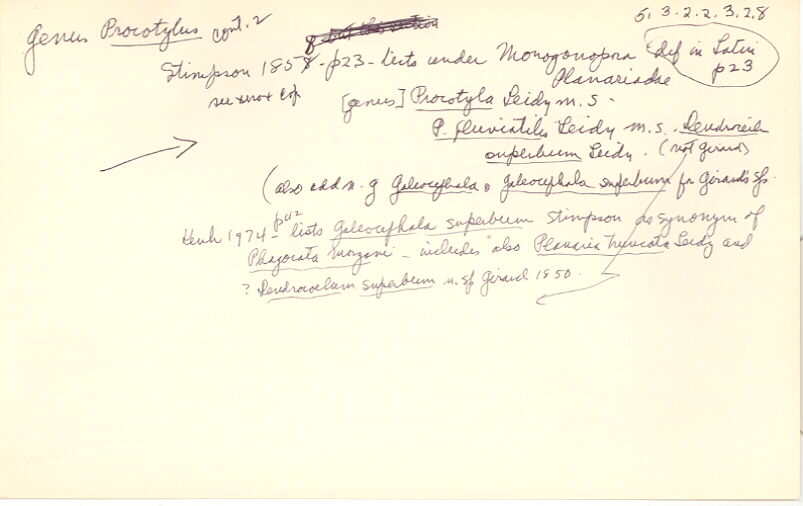 5, 3. 2. 2. 3. 2. 8
Genus Procotylus cont. 2
Stimpson 1858 - p23 - lists under Monogonopora (def in Latin p23
Planariadae
see xerox cop
[genus] Procotyla Leidy m.s.
P. fluviatilis Leidy m.s.
superbum Leidy. (not Girard)
(also add n. g Galeocephala & Galeocephala superbum for Girard's sp.
Kenk 1974 - p42 lists Galeocephala superbum Stimpson as synonym of
Phagocata morgani - includes also Planaria truncata Leidy and
? Dendrocoelum superbum n. sp Girard 1850.